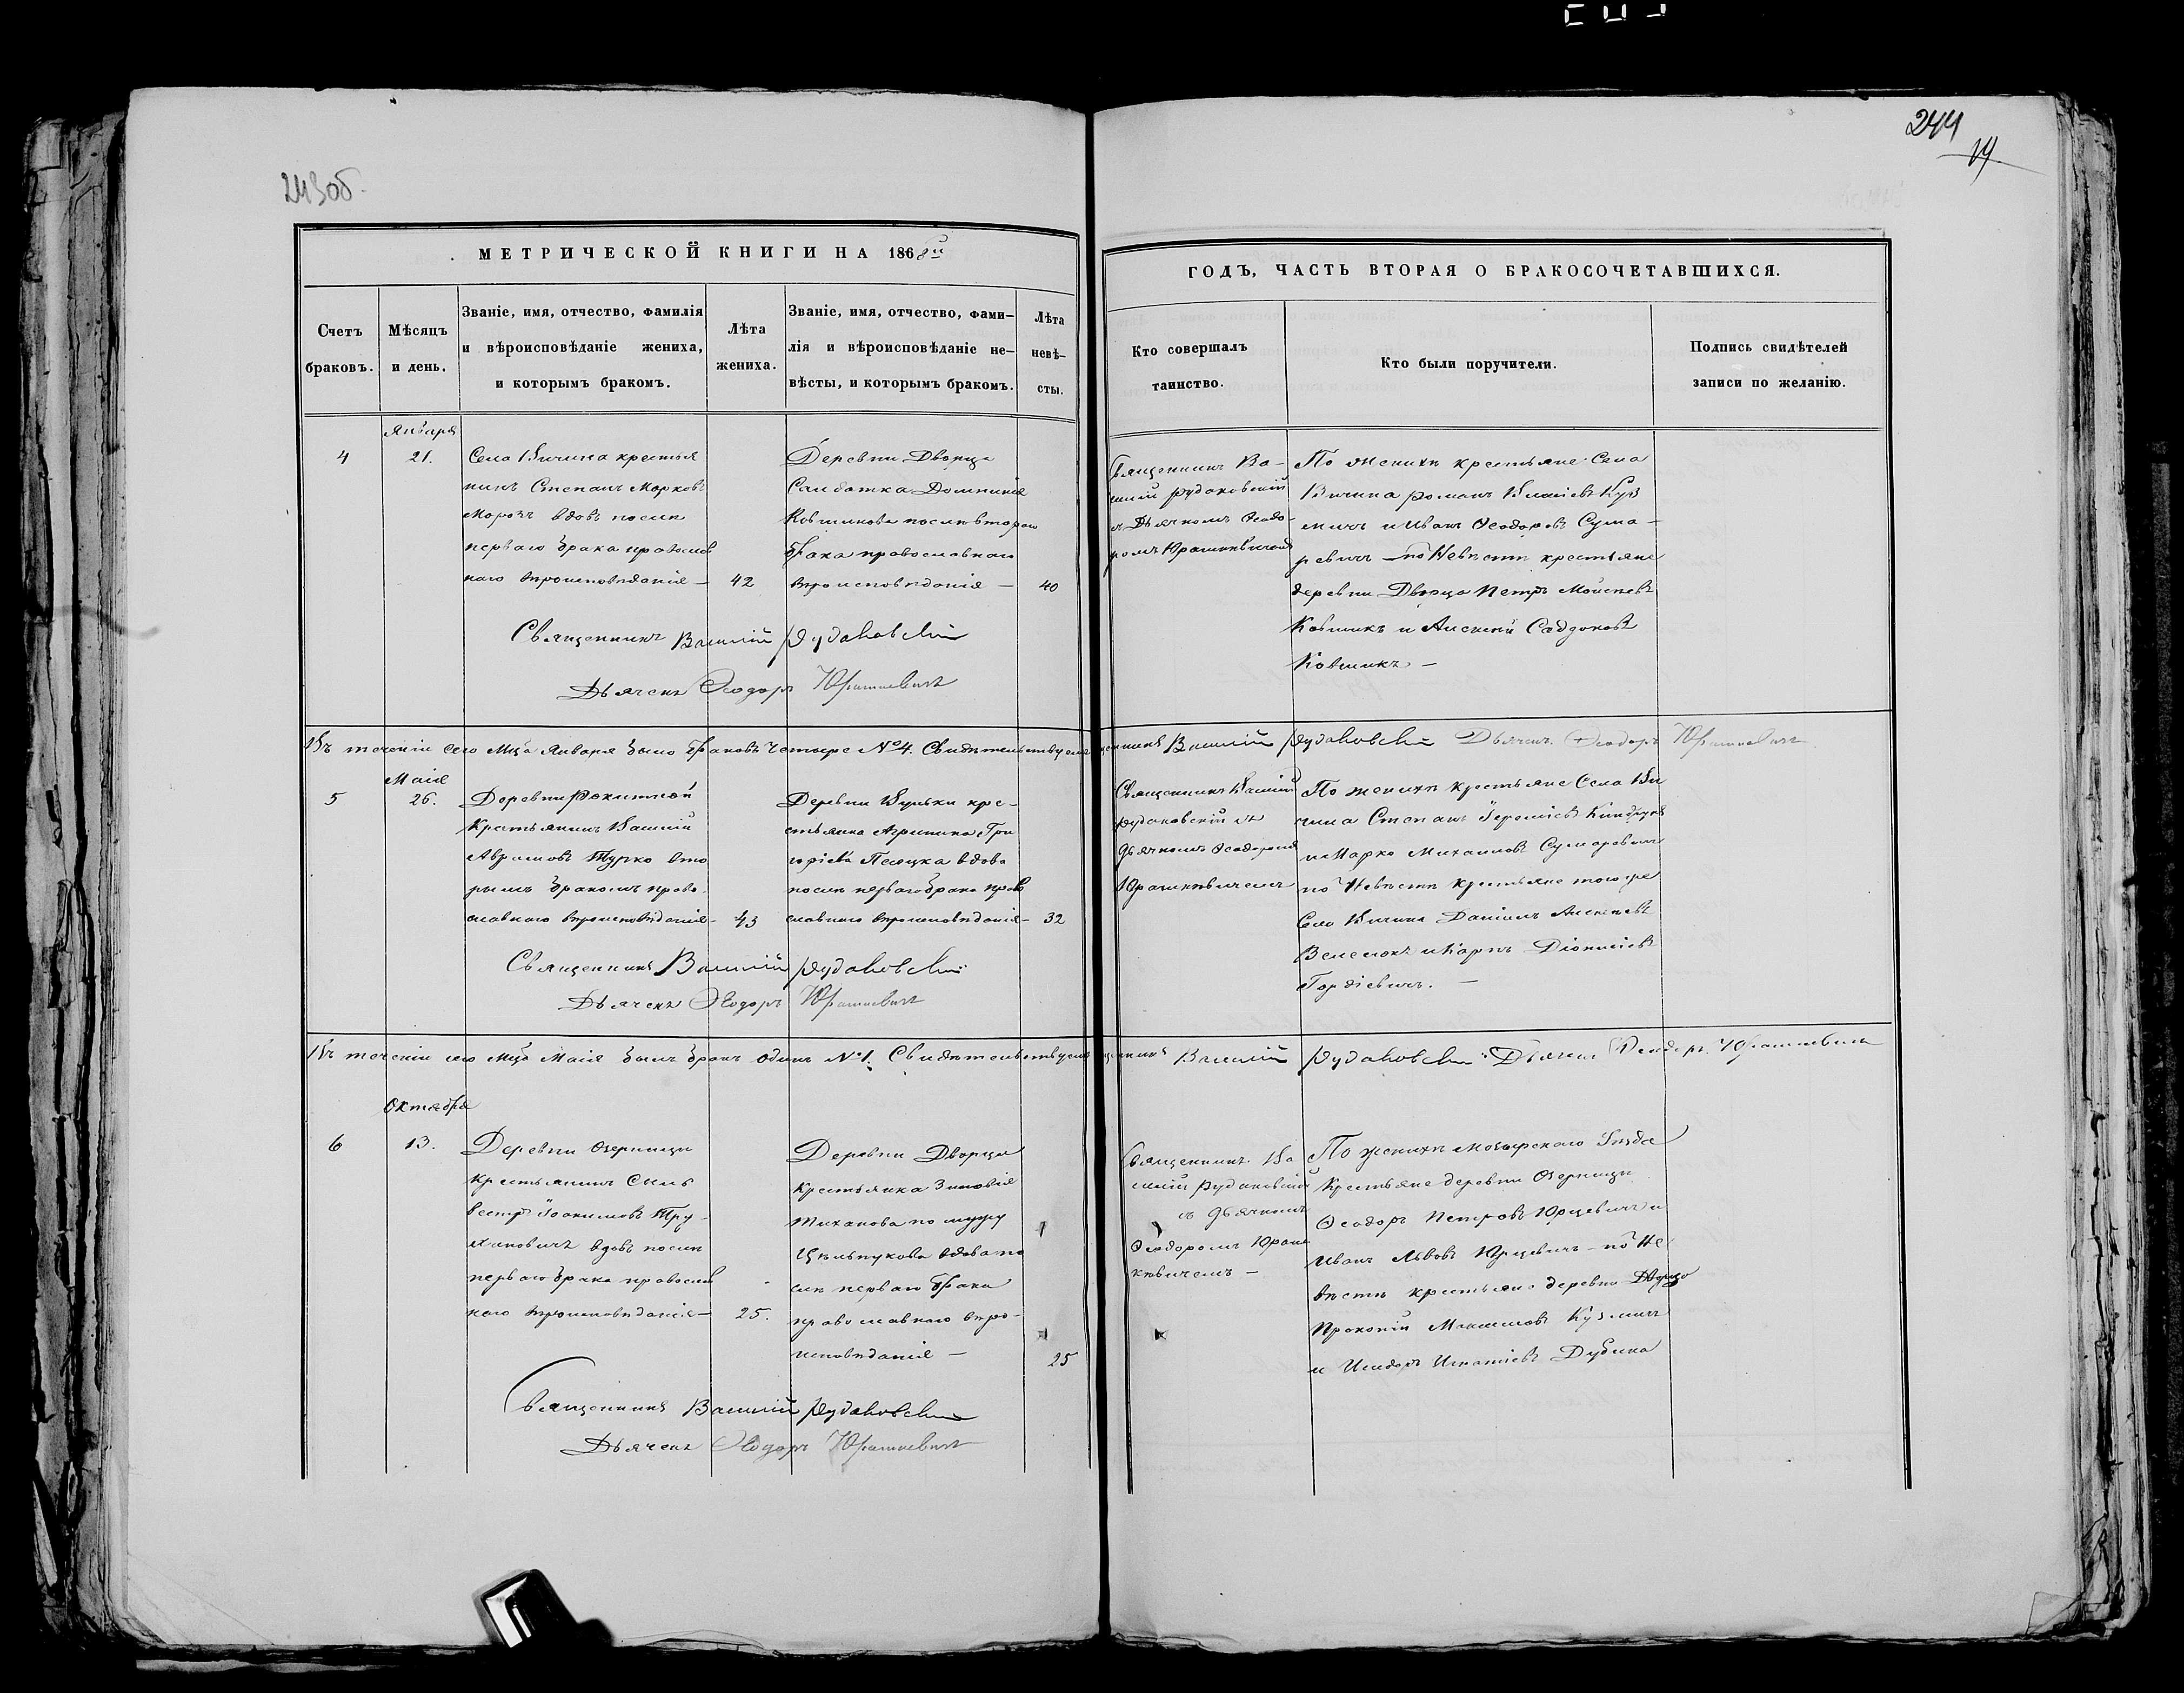 243об.
244
14
МЕТРИЧЕСКОЙ КНИГИ НА 1868й
ГОДЪ, ЧАСТЬ ВТОРАЯ О БРАКОСОЧЕТАВШИХСЯ.
Счетъ
браковъ.
Мѣсяцъ
и день.
Званіе, имя, отчество, фамилія
и вѣроисповѣданіе жениха,
и которымъ бракомъ.
Лѣта
жениха.
Званіе, имя, отчество, фами–
лія и вѣроисповѣданіе не–
вѣсты, и которымъ бракомъ.
Лѣта
невѣ–
сты.
Кто совершалъ
таинство.
Кто были поручители.
Подпись свидѣтелей
записи по желанію.
4
Января
21.
Села Вичина крестья
нинъ Степанъ Марковъ
Морозъ вдовъ послѣ
перваго брака православ
наго вѣроисповѣданія –
42
Деревни Дворца
Солдатка Домникія
Ковшикова послѣ втораго
брака православнаго
вѣроисповѣданія –
40
Священникъ Ва–
силій Рудаковскій
съ Дьячкомъ Ѳеодо–
ромъ Юрашкевичемъ
По женихѣ крестьяне Села
Вичина Романъ Куз
мичъ и Иванъ Ѳеодоровъ Сума–
ревичъ – по Невѣстѣ крестьяне
деревни Дворца Петръ Моисеевъ
Ковшикъ и Алексѣй
Ковшикъ –
Священникъ Василій Рудаковскій
Дьячекъ Ѳеодоръ Юрашкевичъ
Въ теченіи сего Мца Января было браковъ Четыре №4. Свидѣтельствуемъ Священникъ Василій Рудаковскій Дьячекъ Ѳеодоръ Юрашкевичъ
5
Маія
26.
Деревни Рокитной
Крестьянинъ Василій
Аврамовъ Турко вто
рымъ бракомъ право–
славнаго вѣроисповѣданія –
43
Деревни Вульки кре–
стьянка Агрипина Гри
горіева вдова
послѣ перваго брака право
славнаго вѣроисповѣданія –
32
Священникъ Василій
Рудаковскій съ
дьячкомъ Ѳеодоромъ
Юрашкевичемъ
По женихѣ крестьяне Села Ви
чина Степанъ Іереміевъ
и Марко Михаиловъ Сумаревичъ
по Невѣстѣ крестьяне того же
Села Вичина Даніилъ Алексѣевъ
и Карпъ Діонисіевъ
Гордіевичъ. –
Священникъ Василій Рудаковскій
Дьячекъ Ѳеодоръ Юрашкевичъ
Въ теченіи сего Мца Маія былъ бракъ одинъ №1. Свидѣтельствуемъ Священникъ Василій Рудаковскій Дьячекъ Ѳеодоръ Юрашкевичъ
6
Октября
13.
Деревни Озерницы
Крестьянинъ Силь
вестръ Іоакимовъ Тру–
хановичъ вдовъ послѣ
перваго брака православ
наго вѣроисповѣданія –
25.
Деревни Дворца
Крестьянка Зиновія
Тиханова по мужу
вдова по
слѣ перваго брака
православнаго вѣро–
исповѣданія –
25
Священникъ Ва
силій Рудаковскій
съ дьячкомъ
Ѳеодоромъ Юраш
кевичемъ –
По женихѣ Мозырскаго Уѣзда
Крестьяне деревни Озерницы
Ѳеодоръ Петровъ Юрцевичъ и
Иванъ Львовъ Юрцевичъ – по Не
вѣстѣ крестьяне деревни Дворца
Прокопій Максимовъ Кузмичъ
и Исидоръ Игнатіевъ Дубина
Священникъ Василій Рудаковскій
Дьячекъ Ѳеодоръ Юрашкевичъ